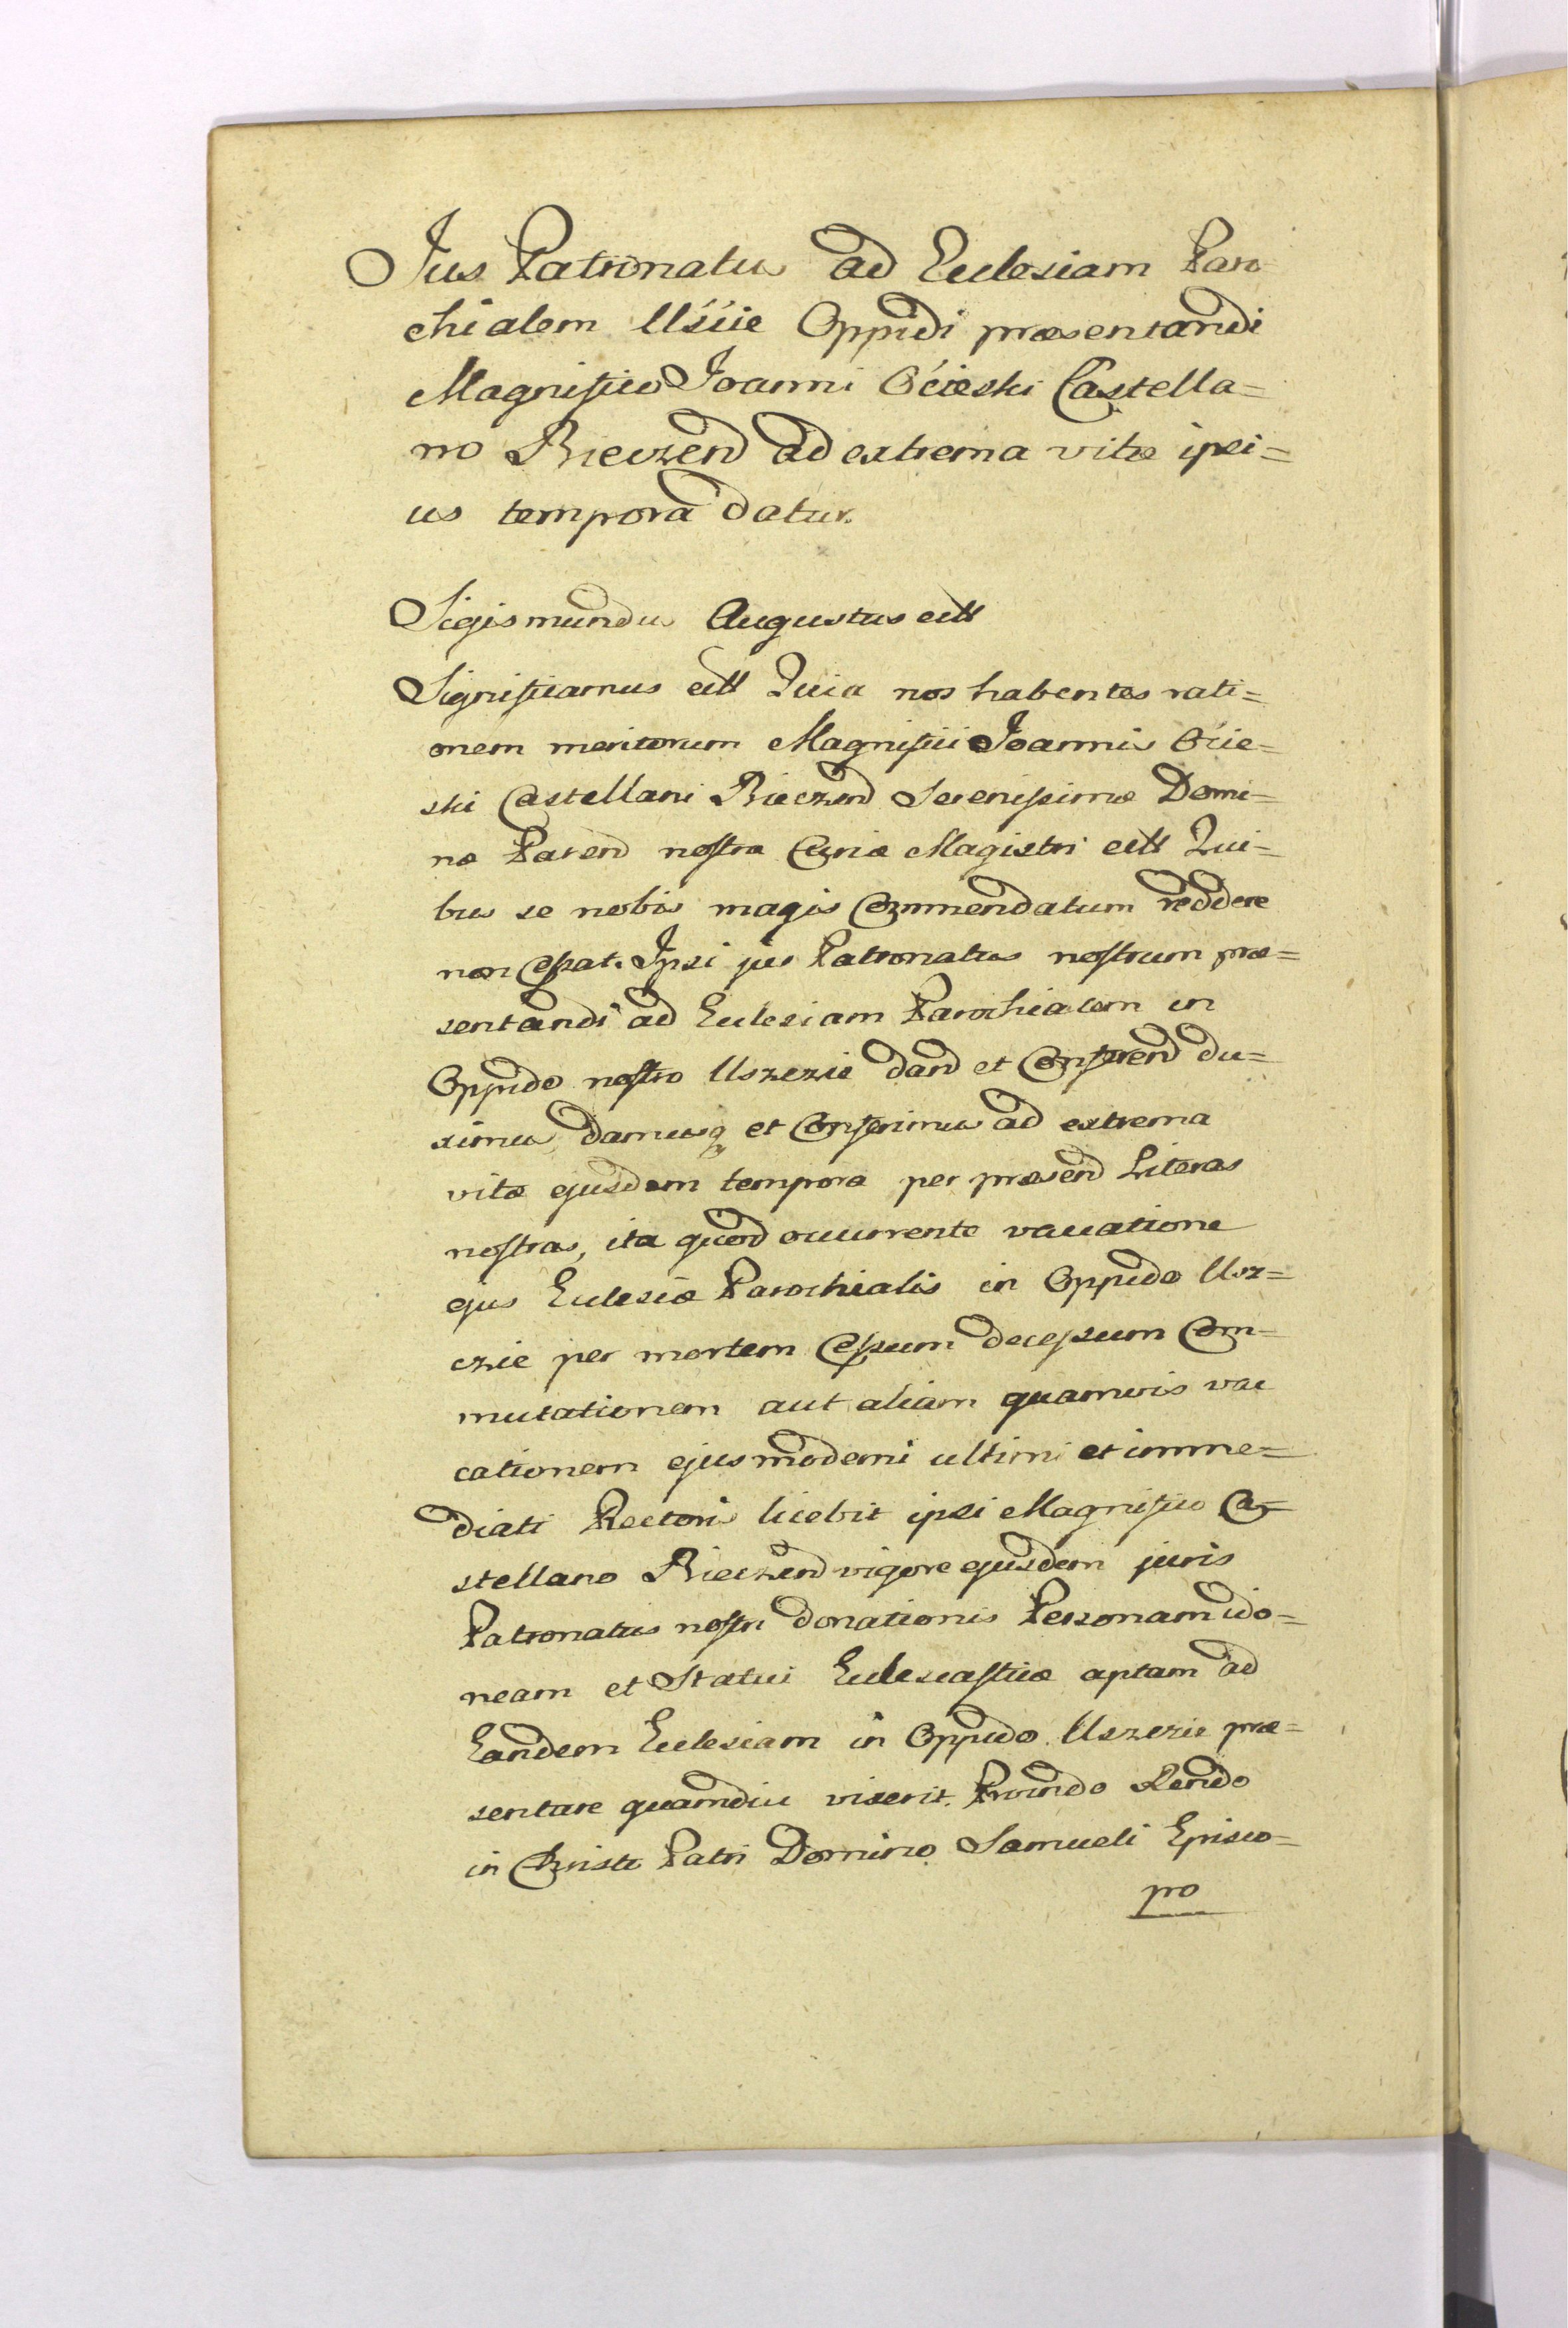 Jus Patronatus ad Ecclesiam Paro
chialem Uście Oppidi præsentandi
Magnifico Joanni Ocieski Castella=
no Bieczen͂d ad extrema vitæ ipsi=
us tempora datur.
Sigismundus Augustus ett
Significamus ett Quia nos habentes rati=
onem meritorum Magnifici Joannis Ocie=
ski Castellani Bieczend Serenissimæ Domi=
næ Parend nostræ Curiæ Magistri ett Qui=
bus se nobis magis Commendatum reddere
non cessat. Ipsi jus Patronatus nostrum præ=
sentandi ad Ecclesiam Parochialem in
Oppido nostro Uszczie dand et Conferend du=
ximus, damusq et Conferimus ad extrema
vitæ ejusdem tempora per præsend Literas
nostras, ita quod occurrente vacatione
ejus Ecclesiæ Parochialis in Oppido Usz=
czie per mortem Cessum decessum Com=
mutationem aut aliam quamvis vac
cationem ejusmodemi ultimi et imme=
diati Rectoris licebit ipsi Magnifico Ca=
stellano Bieczend vigore ejusdem juris
Patronatus nostri donationis Personam ido=
neam et Statui Ecclesiasticæ aptam ad
Eandem Ecclesiam in Oppido Uszczie præ=
sentare quamdiu vixerit. Proindo Rendo
in Christo Patri Domino Samueli Episco=
po